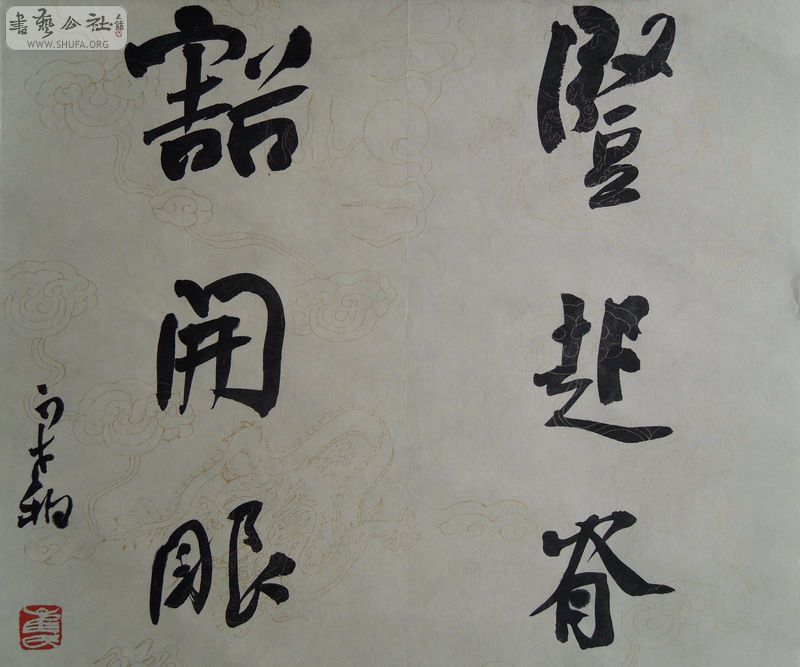 書藝公社
WWW.SHUFA.ORG
豎起脊
豁開眼